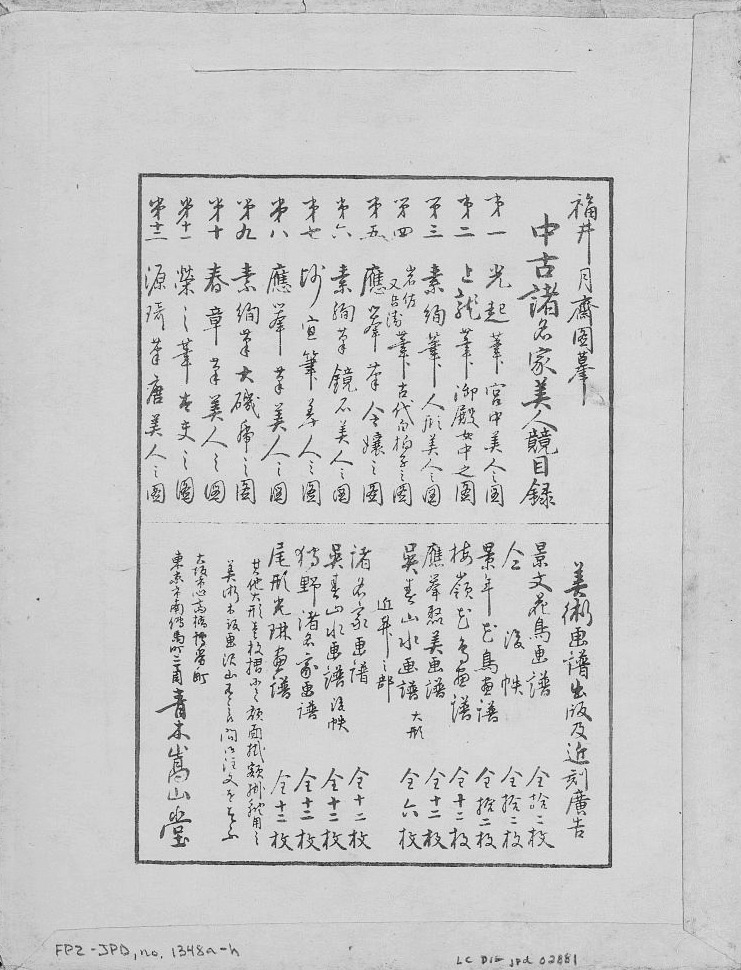 福井月齋圖摹
中古諸名家美人競目録
第一 光起筆 宮中美人之圖
第二 上龍筆 御殿女中之圖
第三 素絢筆 人形美人之圖
第四 岩佐又兵衛筆 古代白拍子之圖
第五 應擧筆 令嬢之圖
第六 素絢筆 鏡石美人之圖
第七 宣筆 美人之圖
第八 應擧筆 美人之圖
第九 素絢筆 大磯虎之圖
第十 春章筆 美人之圖
第十一 榮之筆 之圖
第十二 源琦筆 唐美人之圖
美術画譜出版及近刻廣告
景文花鳥画譜 全拾二枚
仝 後帙 全拾二枚
景年花鳥画譜 全拾二枚
梅嶺花鳥画譜 全十二枚
應擧聚美画譜 全十二枚
呉春山水画譜 大形 全六枚
近刻之部
諸名家画譜 全十二枚
呉春山水画譜 後帙 全十二枚
狩野諸名家画譜 全十二枚
尾形光琳画譜 全十二枚
其他大形壱枚摺ニて額面掛額掛物用之
美術木版画沢山有之候間御注文を乞ふ
大坂市心斎橋博労町
東京市南傳馬町二丁目
青木嵩山堂
FP2-JPD, no. 1348a-h
LC DIG jpd 02881